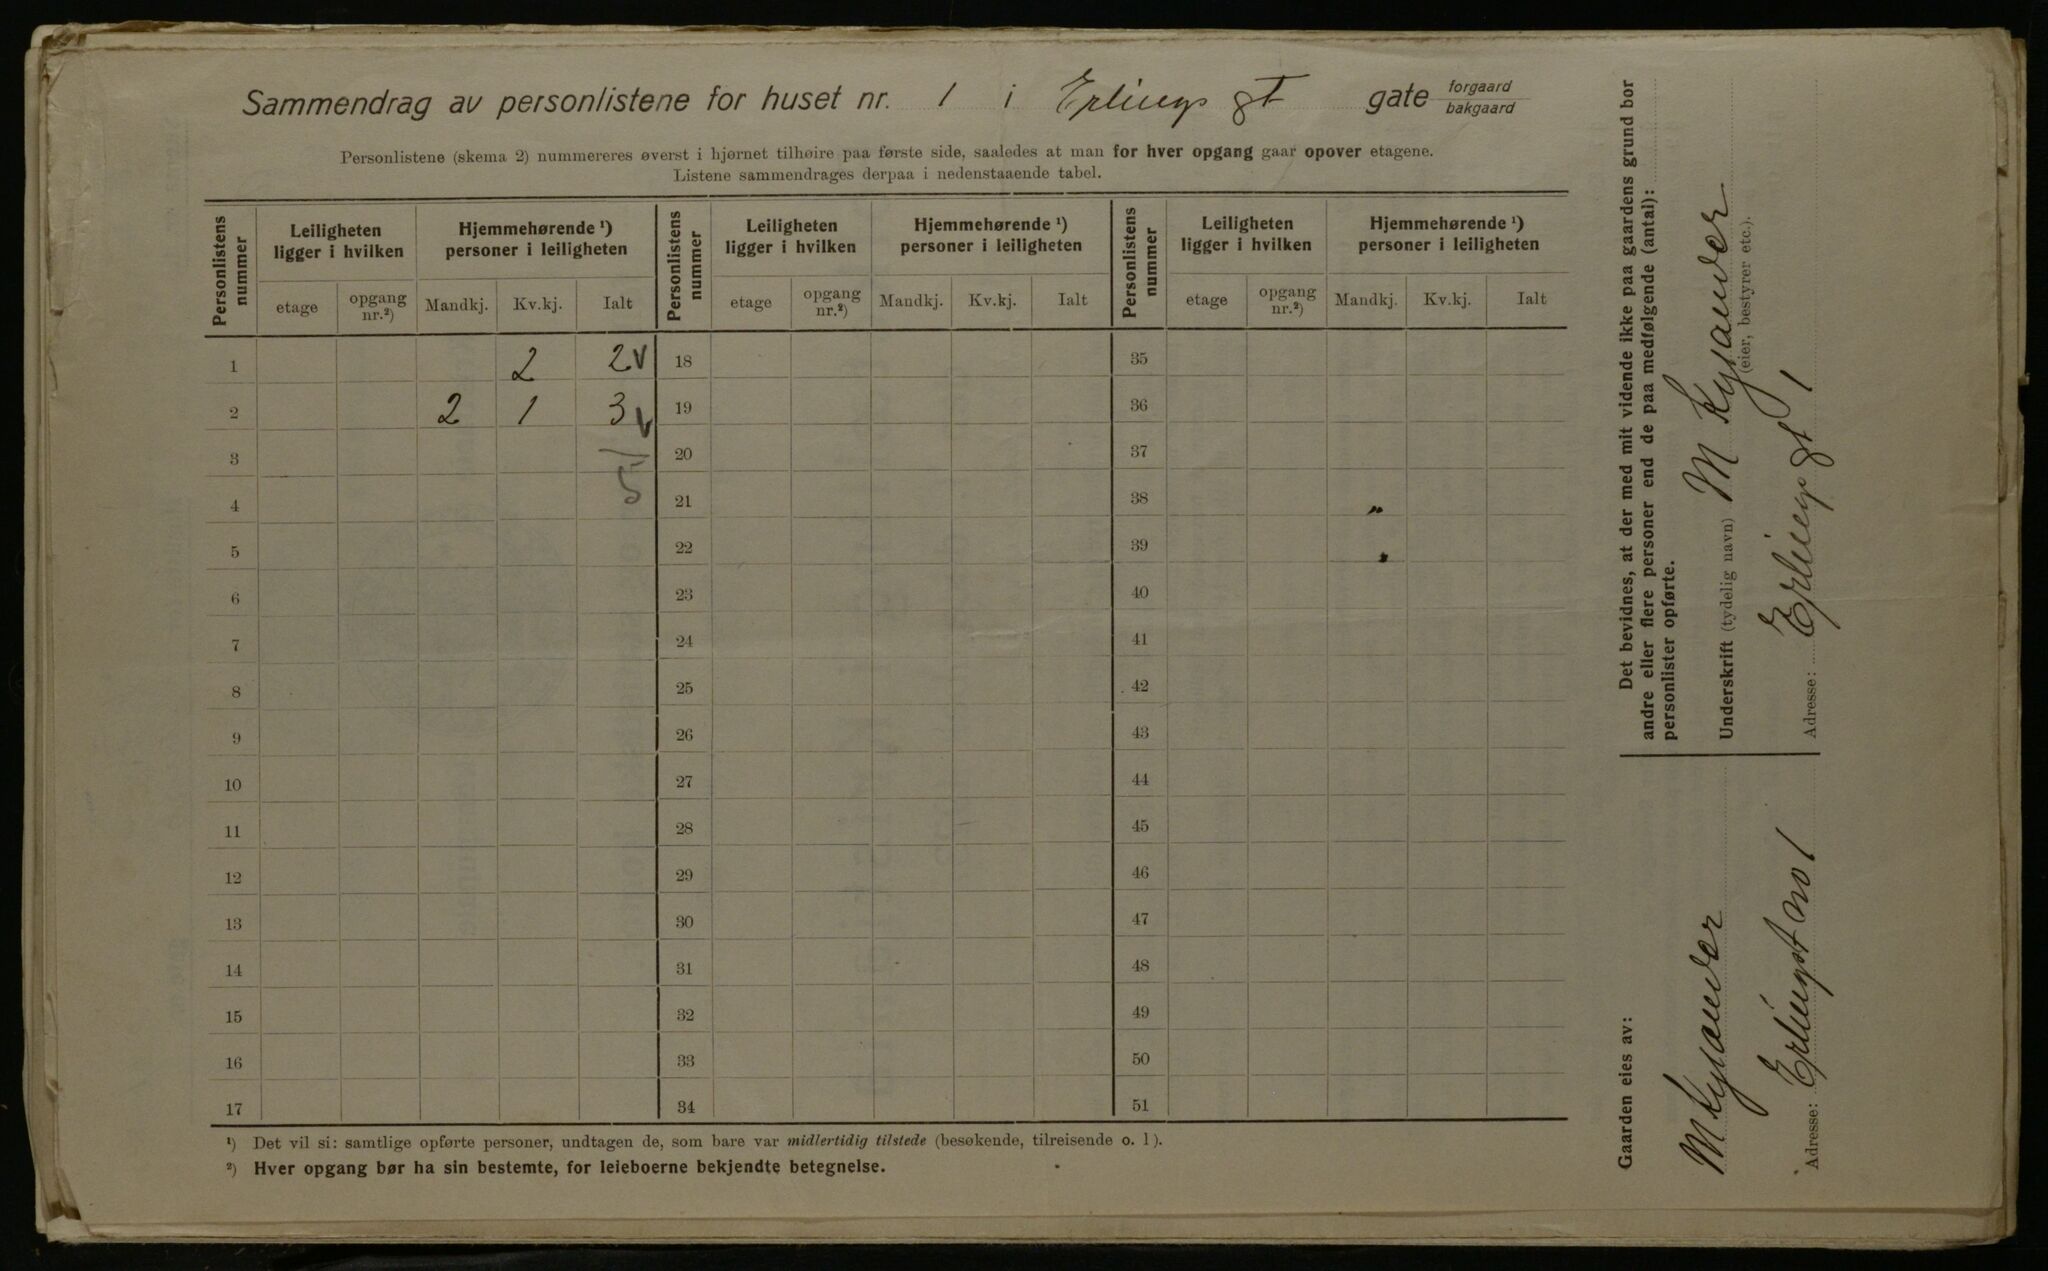 Sammendrag av personlistene for huset nr. 1 i Erlings gt gate forgaard
bakgaard
Personlistene (skema 2) nummereres øverst i hjørnet tilhøire paa første side, saaledes at man for hver opgang gaar opover etagene.
Listene sammendrages derpaa i nedenstaaende tabel.
Personlistens nummer Leiligheten ligger i hvilken Hjemmehørende ¹) personer i leiligheten Personlistens nummer Leiligheten ligger i hvilken Hjemmehørende ¹) personer i leiligheten Personlistens nummer Leiligheten ligger i hvilken Hjemmehørende ¹) personer i leiligheten
etage opgang nr.²) Mandkj. Kv.kj. Ialt etage opgang nr.²) Mandkj. Kv.kj. Ialt etage opgang nr.²) Mandkj. Kv.kj. Ialt
1 2 2 18 35
2 2 1 3 19 36
3 20 37
4 5 21 38 "
5 22 39 "
6 23 40
7 24 41
8 25 42
9 26 43
10 27 44
11 28 45
12 29 46
13 30 47
14 31 48
15 32 49
16 33 50
17 34 51
¹) Det vil si: samtlige opførte personer, undtagen de, som bare var midlertidig tilstede (besøkende, tilreisende o. l).
²) Hver opgang bør ha sin bestemte, for leieboerne bekjendte betegnelse.
Det bevidnes, at der med mit vidende ikke paa gaardens grund bor
andre eller flere personer end de paa medfølgende (antal):
personlister opførte.
Underskrift (tydelig navn) M Kysander
(eier, bestyrer etc.).
Adresse: Erlings gt 1
Gaarden eies av:
M Kysander
Adresse: Erlingsgt no 1